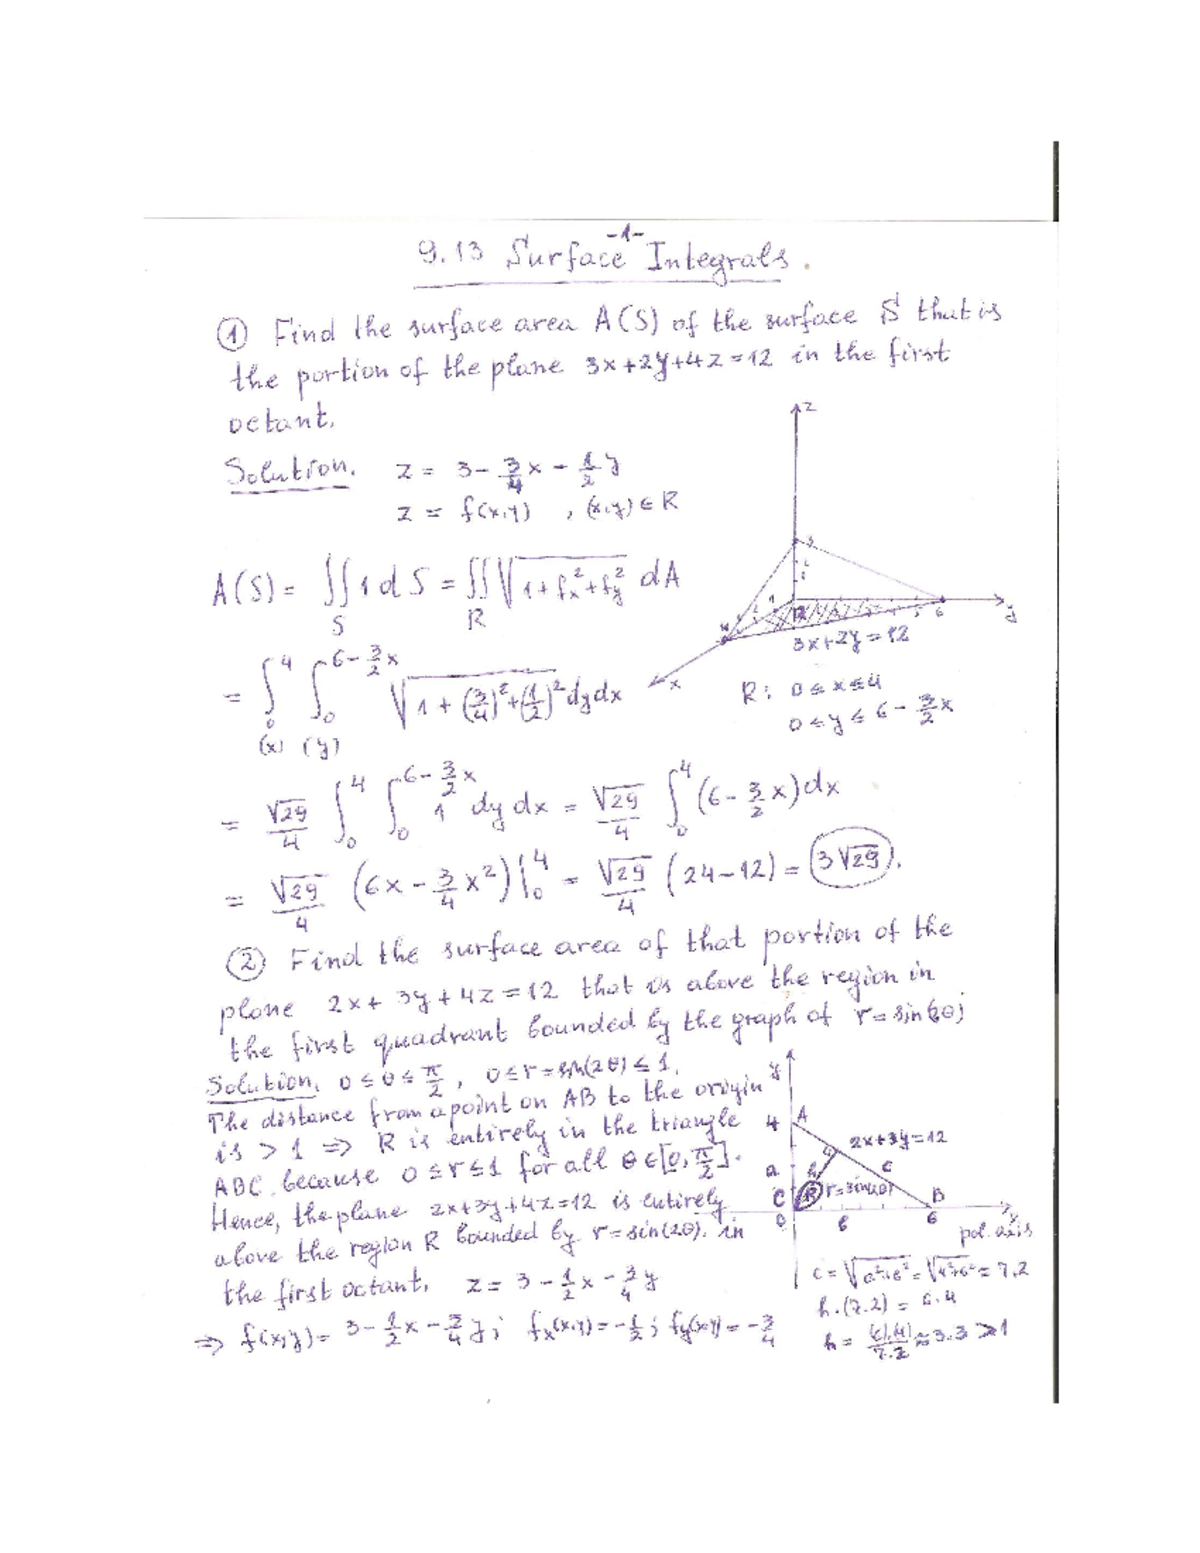 -1-
9.13 Surface Integrals.
① Find the surface area A(S) of the surface S that is
the portion of the plane 3x+2y+4z=12 in the first
octant.
Solution. z = 3 - 3/4 x - 1/2 y
z = f(x,y) , (x,y) ∈ R
A(S) = ∬_S 1 dS = ∬_R √(1+f_x^2+f_y^2) dA
z
3
2
1
1
2
4
R
5
6
y
3x+2y=12
x
R: 0≤x≤4
0≤y≤6-3/2 x
= ∫_0^4 ∫_0^{6-3/2 x} √(1+(3/4)^2+(1/2)^2) dy dx
(x) (y)
= √29/4 ∫_0^4 ∫_0^{6-3/2 x} 1 dy dx = √29/4 ∫_0^4 (6-3/2 x) dx
= √29/4 (6x - 3/4 x^2) |_0^4 = √29/4 (24-12) = 3√29.
② Find the surface area of that portion of the
plane 2x+3y+4z=12 that is above the region in
the first quadrant bounded by the graph of r=sin(2θ)
Solution. 0≤θ≤π/2, 0≤r=sin(2θ)≤1.
The distance from a point on AB to the origin
is >1 ⇒ R is entirely in the triangle
ABC because 0≤r≤1 for all θ∈[0,π/2].
Hence, the plane 2x+3y+4z=12 is entirely
above the region R bounded by r=sin(2θ). in
the first octant. z = 3 - 1/2 x - 3/4 y
⇒ f(x,y) = 3 - 1/2 x - 3/4 y; f_x(x,y) = -1/2; f_y(x,y) = -3/4
y
4
A
2x+3y=12
a
h
c
C
R
r=sin(2θ)
B
0
6
6
x
pol. axis
c = √(a^2+b^2) = √(4^2+6^2) = 7.2
h·(7.2) = 6·4
h = (6)(4)/7.2 ≈ 3.3 >1